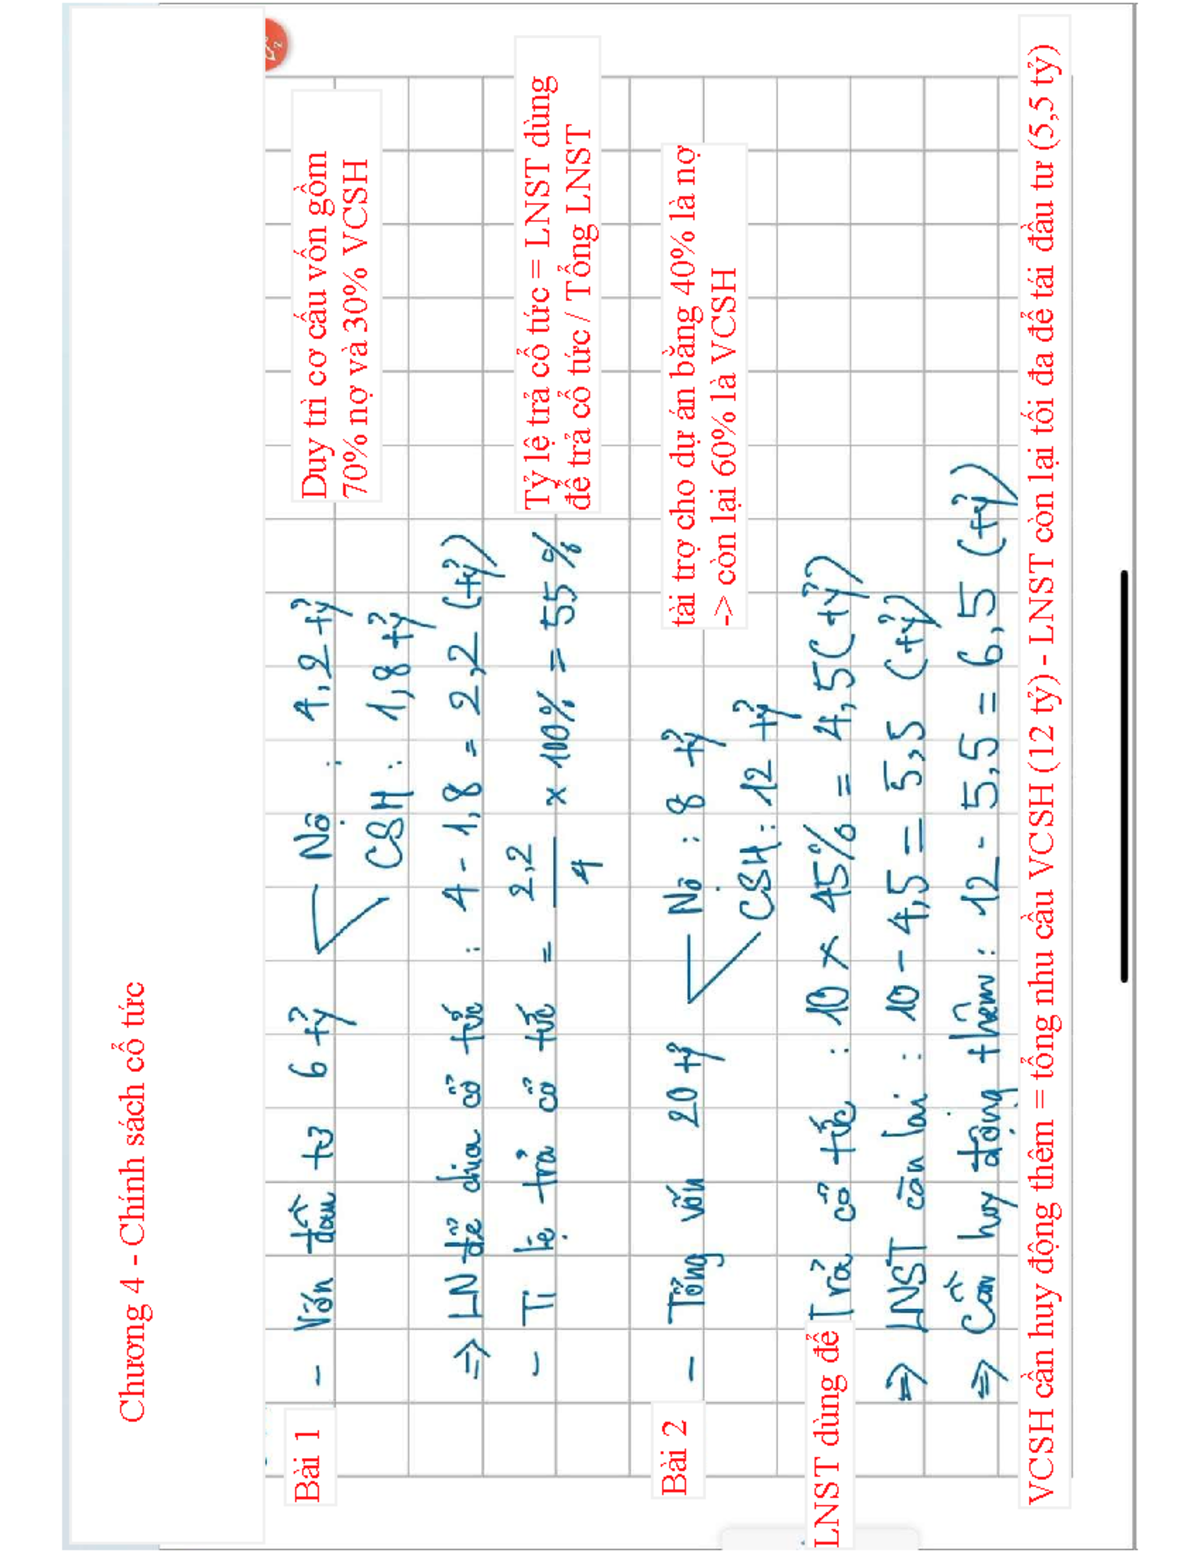 Chương 4 - Chính sách cổ tức
Bài 1
- Vốn đầu tư 6 tỷ
Nợ : 4,2 tỷ
CSH : 1,8 tỷ
Duy trì cơ cấu vốn gồm
70% nợ và 30% VCSH
=> LN để chia cổ tức : 4 - 1,8 = 2,2 (tỷ)
- Tỉ lệ trả cổ tức = 2,2 / 4 x 100% = 55%
Tỷ lệ trả cổ tức = LNST dùng
để trả cổ tức / Tổng LNST
Bài 2
- Tổng vốn 20 tỷ
Nợ : 8 tỷ
CSH : 12 tỷ
tài trợ cho dự án bằng 40% là nợ
-> còn lại 60% là VCSH
LNST dùng để Trả cổ tức : 10 x 45% = 4,5 (tỷ)
=> LNST còn lại : 10 - 4,5 = 5,5 (tỷ)
=> Cần huy động thêm : 12 - 5,5 = 6,5 (tỷ)
VCSH cần huy động thêm = tổng nhu cầu VCSH (12 tỷ) - LNST còn lại tối đa để tái đầu tư (5,5 tỷ)